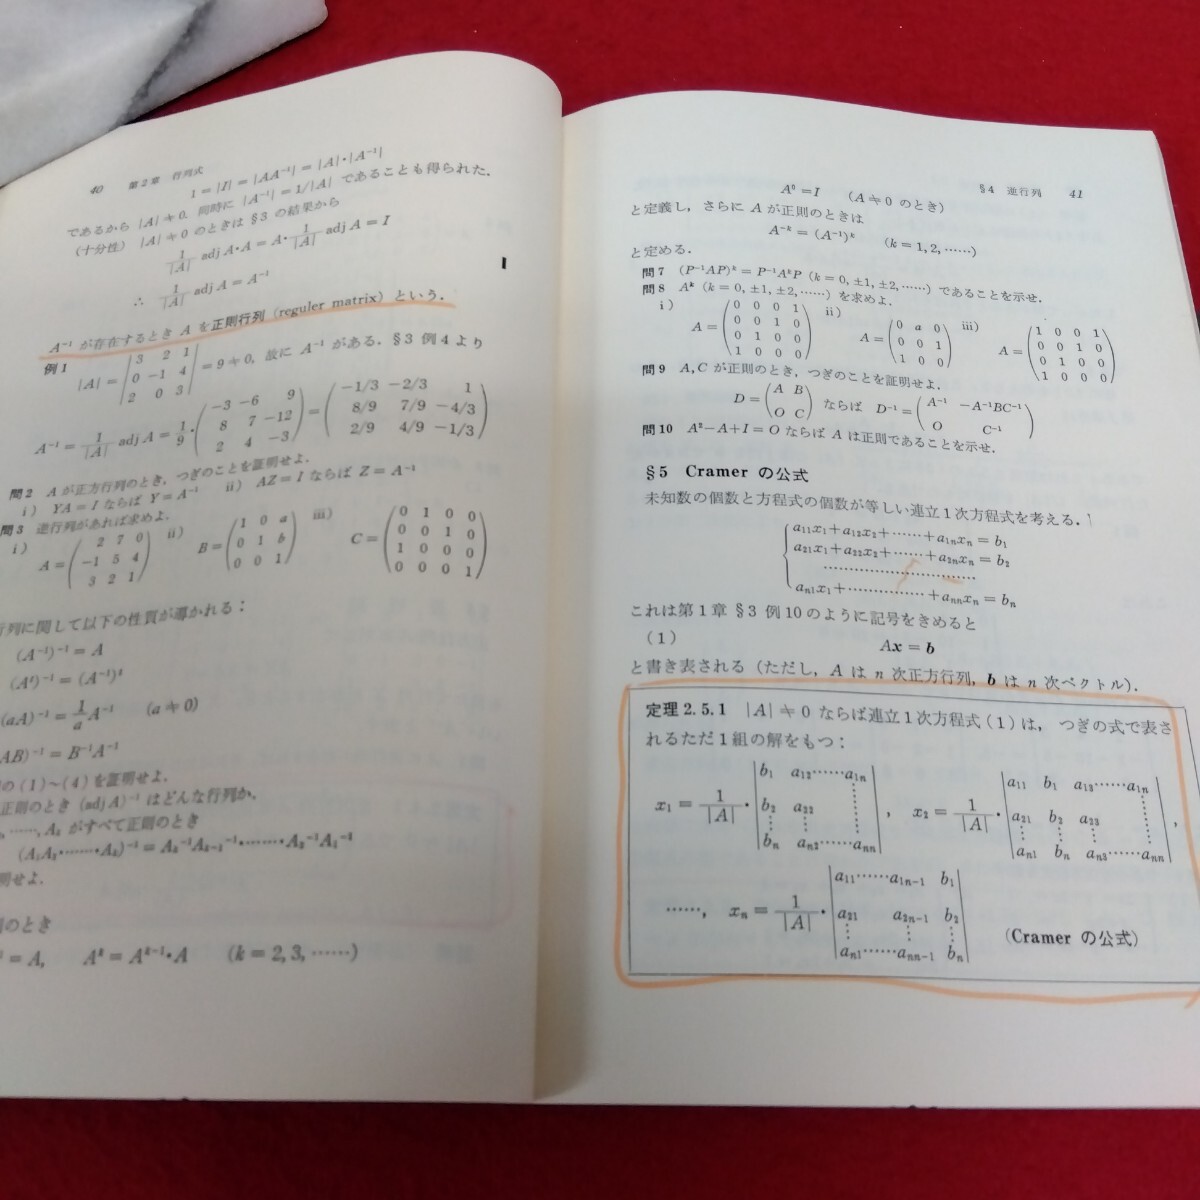 40 第2章 行列式
1=|I|=|AA⁻¹|=|A|·|A⁻¹|
であるから |A|≒0. 同時に |A⁻¹|=1/|A| であることも得られた.
(十分性) |A|≒0 のときは §3 の結果から
1/|A| adj A·A=A·1/|A| adj A=I
∴ 1/|A| adj A=A⁻¹
A⁻¹ が存在するとき A を正則行列 (reguler matrix) という.
例1 |A|= | 3 2 1 | =9≒0, 故に A⁻¹ がある. §3 例4 より
| 0 -1 4 |
| 2 0 3 |
A⁻¹=1/|A| adj A=1/9· ( -3 -6 9 ) = ( -1/3 -2/3 1 )
( 8 7 -12 ) ( 8/9 7/9 -4/3 )
( 2 4 -3 ) ( 2/9 4/9 -1/3 )
問2 A が正方行列のとき, つぎのことを証明せよ.
i) YA=I ならば Y=A⁻¹ ii) AZ=I ならば Z=A⁻¹
問3 逆行列があれば求めよ.
i) A= ( 2 7 0 ) ii) B= ( 1 0 a ) iii) C= ( 0 1 0 0 )
( -1 5 4 ) ( 0 1 b ) ( 0 0 1 0 )
( 3 2 1 ) ( 0 0 1 ) ( 1 0 0 0 )
( 0 0 0 1 )
行列に関して以下の性質が導かれる:
(A⁻¹)⁻¹=A
(Aᵗ)⁻¹=(A⁻¹)ᵗ
(aA)⁻¹=1/a A⁻¹ (a≒0)
AB)⁻¹=B⁻¹A⁻¹
の (1)~(4) を証明せよ.
正則のとき (adj A)⁻¹ はどんな行列か.
,……,Aₖ がすべて正則のとき
(A₁A₂·……·Aₖ)⁻¹=Aₖ⁻¹Aₖ₋₁⁻¹·……·A₂⁻¹A₁⁻¹
明せよ.
のとき
=A, Aᵏ=Aᵏ⁻¹·A (k=2,3,……)
§4 逆行列 41
A⁰=I (A≒0 のとき)
と定義し, さらに A が正則のときは
A⁻ᵏ=(A⁻¹)ᵏ (k=1,2,……)
と定める.
問7 (P⁻¹AP)ᵏ=P⁻¹AᵏP (k=0,±1,±2,……) であることを示せ.
問8 Aᵏ (k=0,±1,±2,……) を求めよ.
i) A= ( 0 0 0 1 ) ii) A= ( 0 a 0 ) iii) A= ( 1 0 0 1 )
( 0 0 1 0 ) ( 0 0 1 ) ( 0 0 1 0 )
( 0 1 0 0 ) ( 1 0 0 ) ( 0 1 0 0 )
( 1 0 0 0 ) ( 1 0 0 0 )
問9 A, C が正則のとき, つぎのことを証明せよ.
D= ( A B ) ならば D⁻¹= ( A⁻¹ -A⁻¹BC⁻¹ )
( O C ) ( O C⁻¹ )
問10 A²-A+I=O ならば A は正則であることを示せ.
§5 Cramer の公式
未知数の個数と方程式の個数が等しい連立1次方程式を考える.
a₁₁x₁+a₁₂x₂+……+a₁ₙxₙ=b₁
a₂₁x₁+a₂₂x₂+……+a₂ₙxₙ=b₂
……………………
aₙ₁x₁+……………+aₙₙxₙ=bₙ
これは第1章 §3 例10のように記号をきめると
(1) Ax=b
と書き表される (ただし, A は n 次正方行列, b は n 次ベクトル).
定理2.5.1 |A|≒0 ならば連立1次方程式 (1) は, つぎの式で表さ
れるただ1組の解をもつ:
x₁=1/|A|· | b₁ a₁₂……a₁ₙ | , x₂=1/|A|· | a₁₁ b₁ a₁₃……a₁ₙ | ,
| b₂ a₂₂ ⋮ | | a₂₁ b₂ a₂₃ ⋮ |
| ⋮ ⋮ ⋮ | | ⋮ ⋮ ⋮ ⋮ |
| bₙ aₙ₂……aₙₙ | | aₙ₁ bₙ aₙ₃……aₙₙ |
……, xₙ=1/|A|· | a₁₁……a₁ₙ₋₁ b₁ |
| a₂₁ a₂ₙ₋₁ b₂ |
| ⋮ ⋮ ⋮ |
| aₙ₁……aₙₙ₋₁ bₙ |
(Cramer の公式)